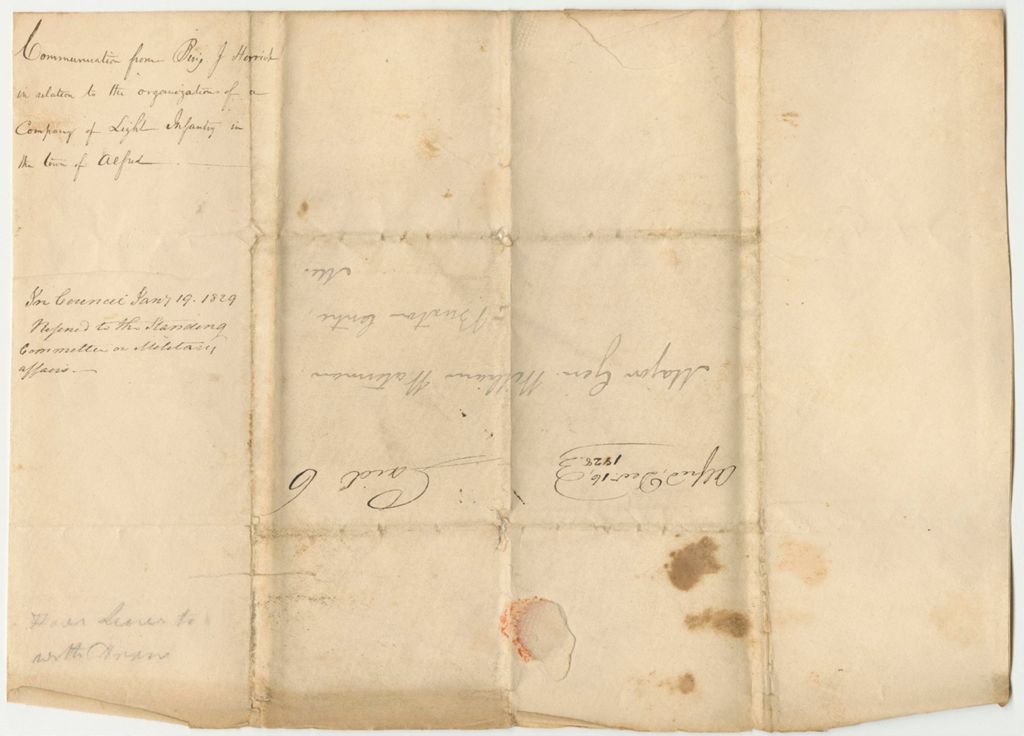 Communication from Benj J Herrick
in relation to the organization of a
Company of Light Infantry in
the town of Alfred
In Council Jany 19. 1829
Refered to the Standing
Committee on Military
affairs.
Have Leave to
withdraw
Alfred, Decr 16,
1828.
Paid 6
Major Gen. William Waterman
Buxton Centre,
Me.